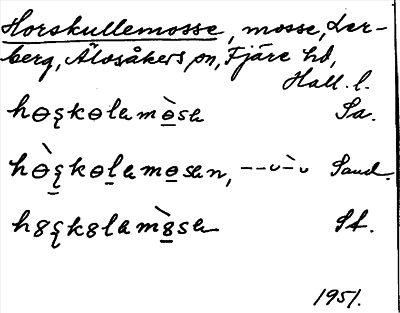 Horskullemosse, mosse, Ler-
berg, Älvsåkers sn, Fjäre hd,
Hall. l.
hɵȿkɵlamɵ̀sa Sa.
hɵ̀ȿkɵlamɵsan, ––⏑–̀⏑ Sand.
h8ȿk8lam8̀sa St.
1951.